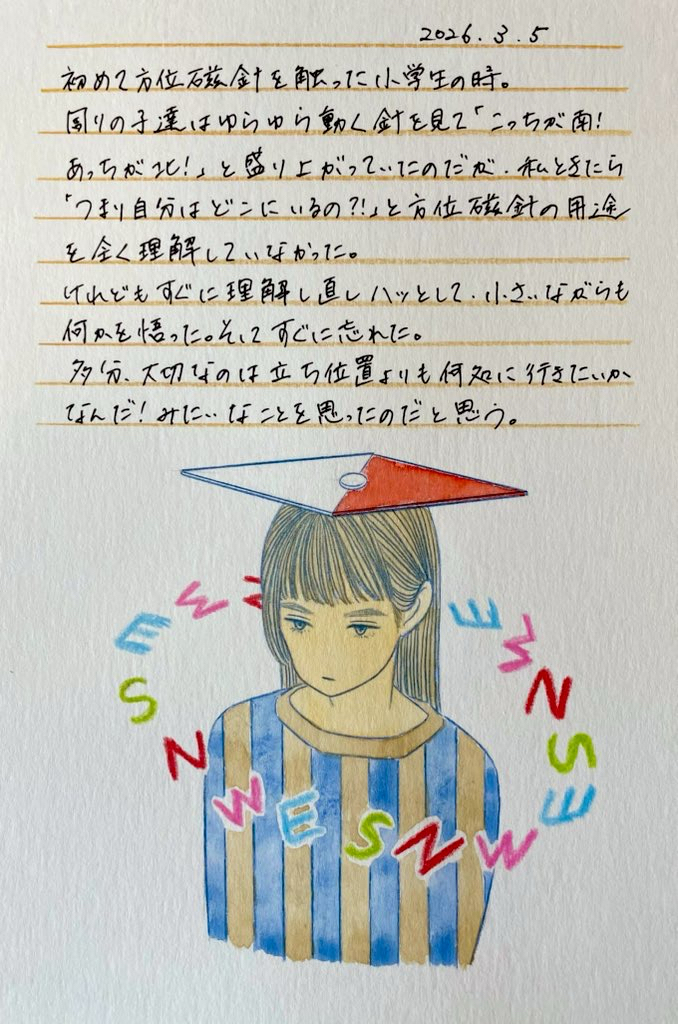 2026.3.5
初めて方位磁針を触った小学生の時。
周りの子達はゆらゆら動く針を見て「こっちが南!
あっちが北!」と盛り上がっていたのだが、私ときたら
「つまり自分はどこにいるの?!」と方位磁針の用途
を全く理解していなかった。
けれどもすぐに理解し直しハッとして、小さいながらも
何かを悟った。そしてすぐに忘れた。
多分、大切なのは立ち位置よりも何処に行きたいか
なんだ!みたいなことを思ったのだと思う。
N W E S N W E S N W E S N W E